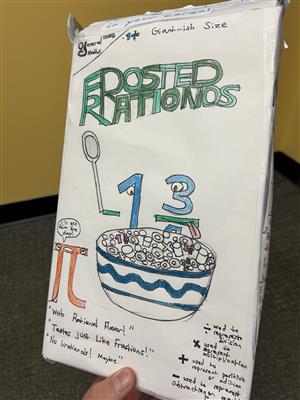 General
Maths
Giant-ish Size
FROSTED
RATIONOS
1 3
π
"With Rational Flavor!"
"Tastes Just Like Fractions!"
"No Irrationals! Maybe"
÷ used to
represent
division
× used to
represent
multiplication
+ used to
represent positive
or addition
- used to represent
subtracting or